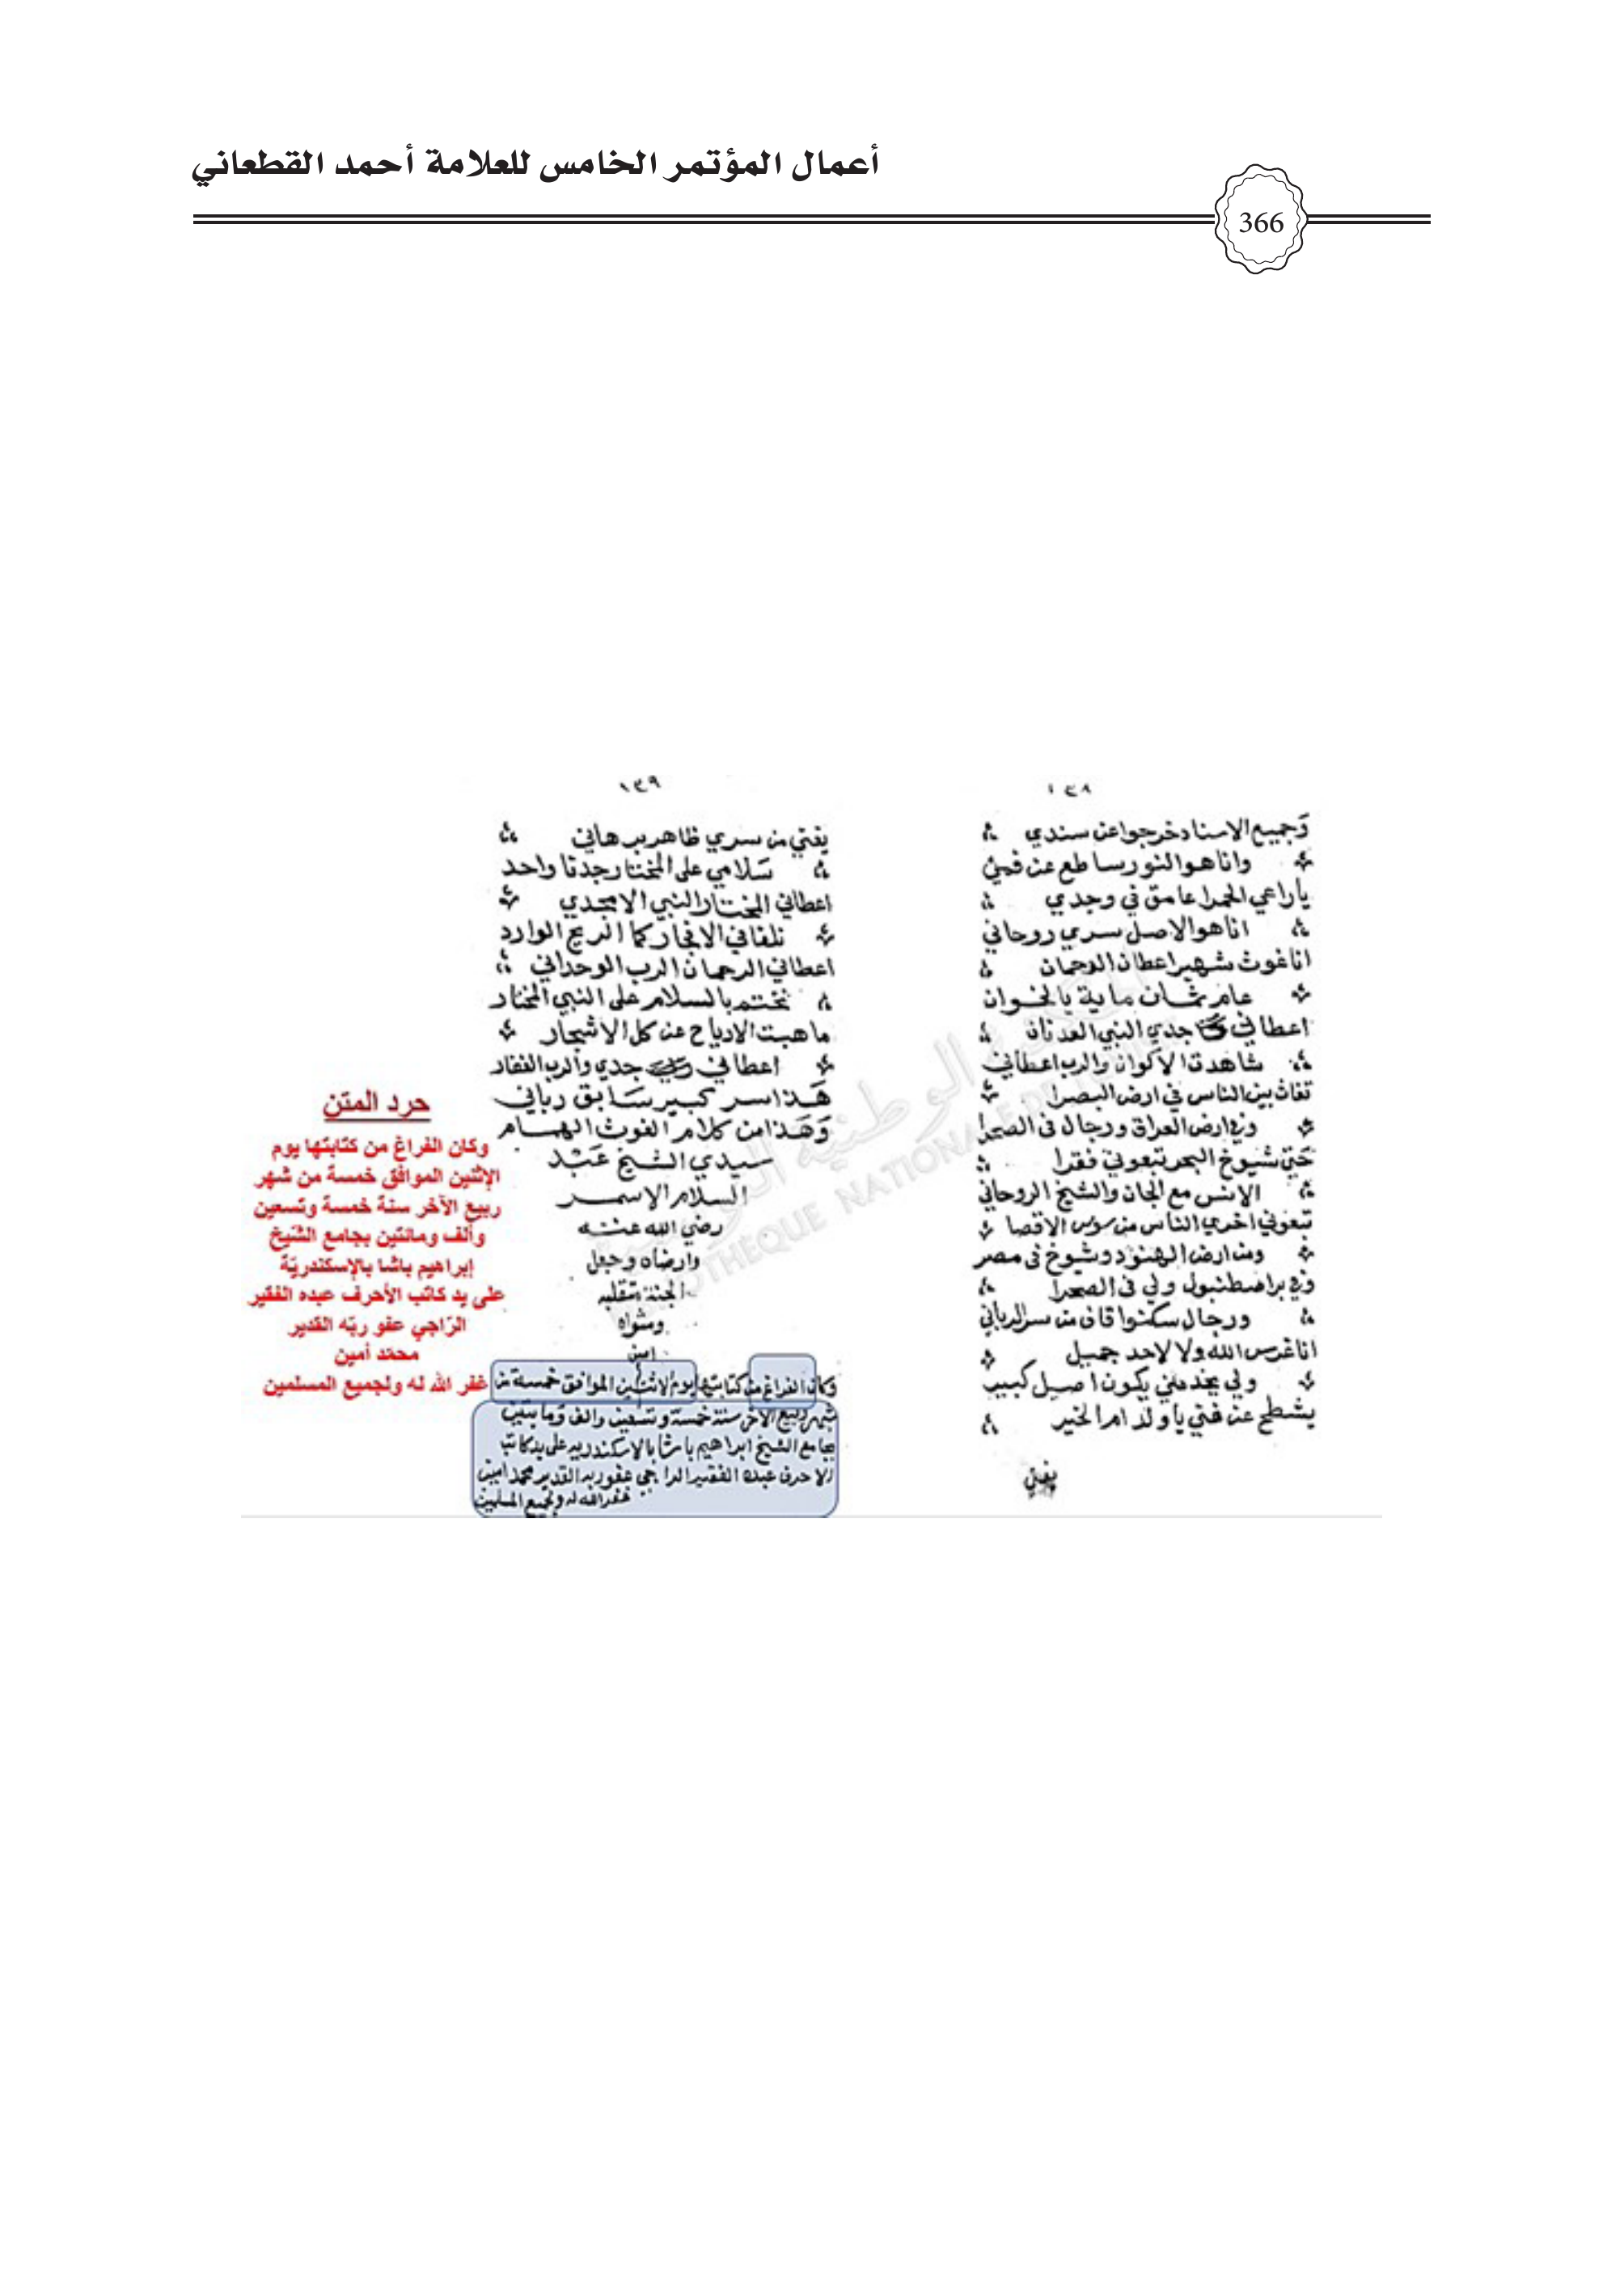 أعمال المؤتمر الخامس للعلامة أحمد القطعاني
366
١٣٨
وجميع الاسناد خرجوا عن سندي
وانا هو النور ساطع عن فمي
ياراعي الحمرا عامق في وجدي
انا هو الاصل سري روحاني
انا غوث شهير اعطان الرحمان
عام ثمان ماية يالخوان
اعطاني جدي النبي العدنان
شاهدت الاكوان والرب اعطاني
بين الناس في ارض البصرا
وفي ارض العراق ورجال في الصحرا
حتى شيوخ البحر تبعوني فقرا
الانس مع الجان والشيخ الروحاني
تبعوني اخري الناس من سوس الاقصا
ومن ارض الهنود وشيوخ في مصر
وفي بر اصطنبول ولي في الصحرا
ورجال سكنوا قاف من سر الرباني
انا غرس الله ولا لاحد جميل
ولي يكون اصيل كبيب
يشطح عن فني يا ولد ام الخير
يفتي
١٣٩
يفتي من سري ظاهر برهاني
سلامي على المختار جدنا واحد
اعطاني المختار النبي الامجدي
تلقاني الريح الوارد
اعطاني الرحمان الرب الوحداني
نختم بالسلام على النبي المختار
ما هبت الارياح عن كل الاشجار
اعطاني جدي والرب الغفار
هذا سر كبير سابق رباني
وهذا من كلام الغوث الهمام
سيدي الشيخ عبد
السلام الاسمر
رضي الله عنه
وارضاه وجعل
الجنة متقلبه
ومثواه
امين
وكان الفراغ من كتابتها يوم الاثنين الموافق خمسة من
شهر ربيع الاخر سنة خمسة وتسعين والف ومايتين
بجامع الشيخ ابراهيم باشا بالاسكندريه على يد كاتب
الاحرف عبده الفقير الراجي عفو ربه القدير محمد امين
غفر الله له ولجميع المسلمين
حرد المتن
وكان الفراغ من كتابتها يوم
الإثنين الموافق خمسة من شهر
ربيع الآخر سنة خمسة وتسعين
وألف ومائتين بجامع الشّيخ
إبراهيم باشا بالإسكندريّة
على يد كاتب الأحرف عبده الفقير
الرّاجي عفو ربّه القدير
محمّد أمين
غفر الله له ولجميع المسلمين
الوطنية
BIBLIOTHEQUE NATIONALE DE